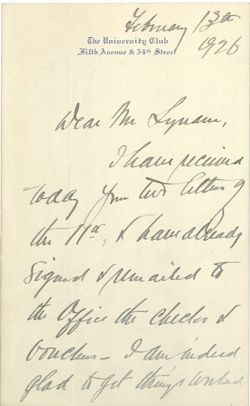 February 13th
1926
The University Club
Fifth Avenue & 54th Street
Dear Mr Lynam,
I have received
today your two letters of
the 11th, & have already
signed & remailed to
the Office the checks &
vouchers - I am indeed
glad to get things worked